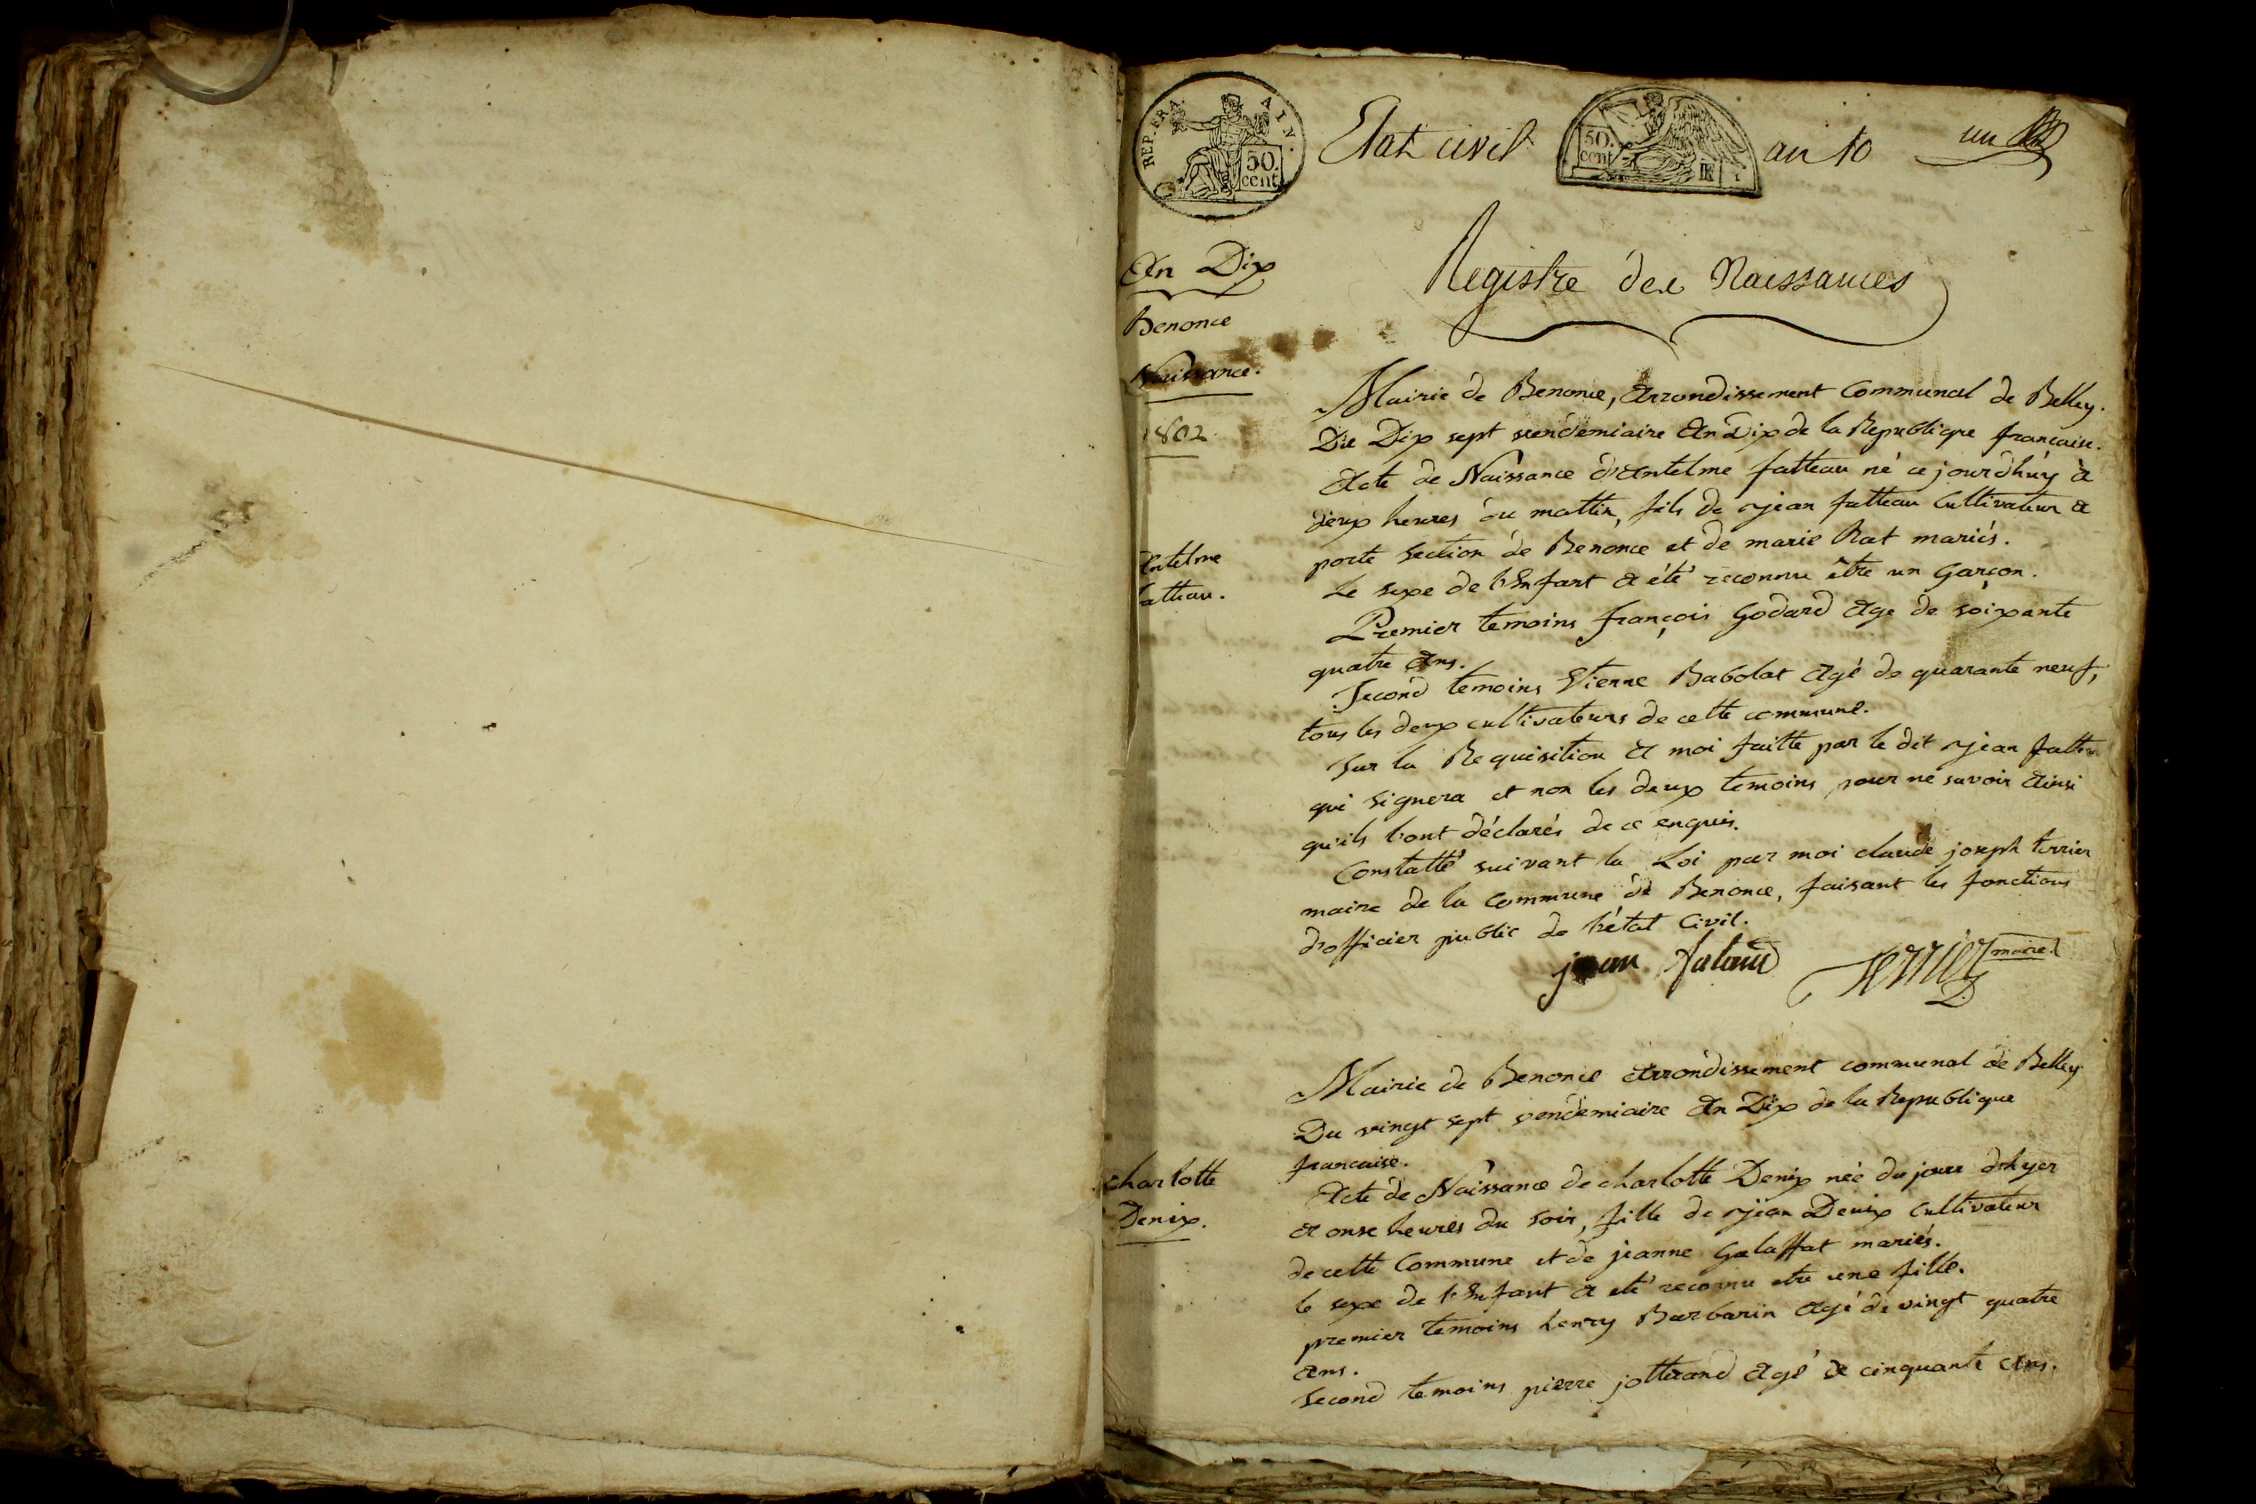 REP. FRA. AIN.
50. cent.
Etat civil
50. cent.
an 10
un
An Dix
Benonce
Naissance.
1802
Registre des Naissances
Mairie de Benonce, Arrondissement Communal de Belley.
Du Dix sept vendemiaire An Dix de la Republique francaise.
Acte de Naissance d'Antelme fatteau né ce jourdhuy a
deux heures du mattin, fils de jean fatteau Cultivateur a
porte Section de Benonce et de marie Rat mariés.
Le sexe de l'Enfant a été reconnu être un Garçon.
Premier temoins françois Godard age de soixante
quatre ans.
Second temoins Etienne Babolat agé de quarante neuf,
tous les deux cultivateurs de cette commune.
Sur la Requisition a moi faitte par le dit jean
qui signera et non les deux temoins pour ne savoir ainsi
qu'ils l'ont déclarés de ce enquis.
Constatté suivant la Loi par moi claude joseph terrier
maire de la commune de Benonce, faisant les fonctions
d'officier public de l'état Civil.
jean terrier maire
Antelme
atteau.
Mairie de Benonce Arrondissement communal de Belley
Du vingt sept vendemiaire An Dix de la Republique
francaise.
Acte de Naissance de charlotte Denix née du jour d'hyer
a onse heures du soir, fille de jean Denix Cultivateur
de cette Commune et de jeanne Galaffat mariés.
le sexe de l'Enfant a eté reconnu etre une fille.
premier temoins henry Barbarin agé de vingt quatre
ans.
Second temoins pierre jotterand agé de cinquante ans.
charlotte
Denix.